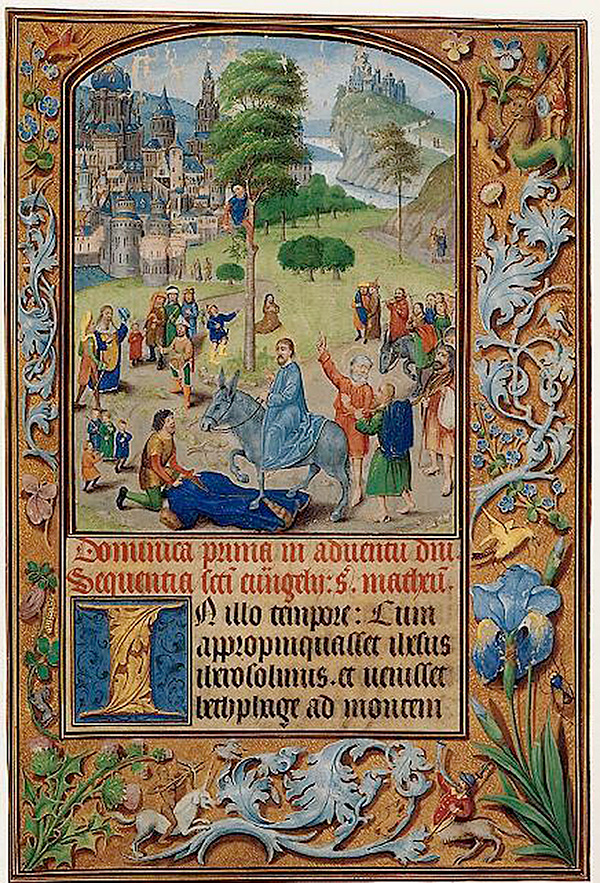 Dominica prima in aduentu dni.
Sequentia scti euugelij: s. matheu.
IN illo tempore: Cum
appropinquasset ihesus
iherosolimis. et uenisset
bethphage ad montem